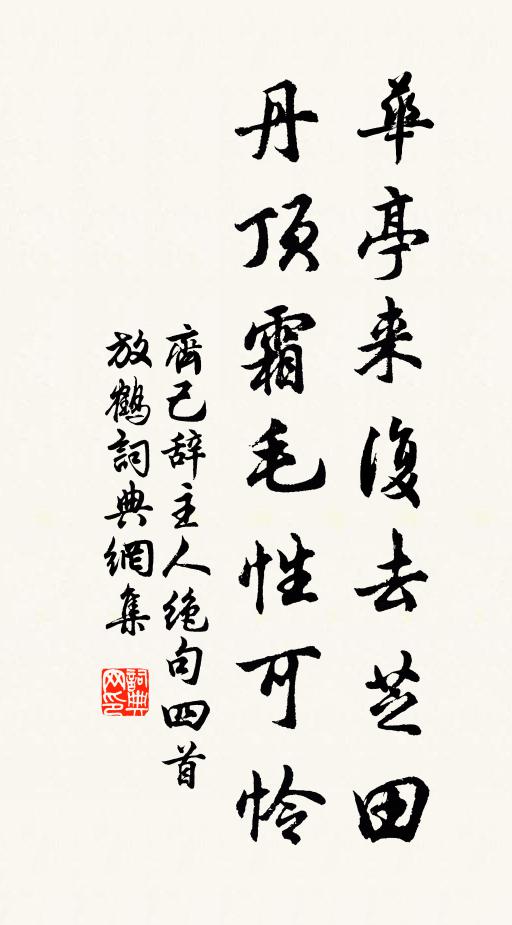 華亭来復去芝田
丹頂霜毛性可怜
齊己辞主人绝句四首
放鶴詞典網集
詞典网印